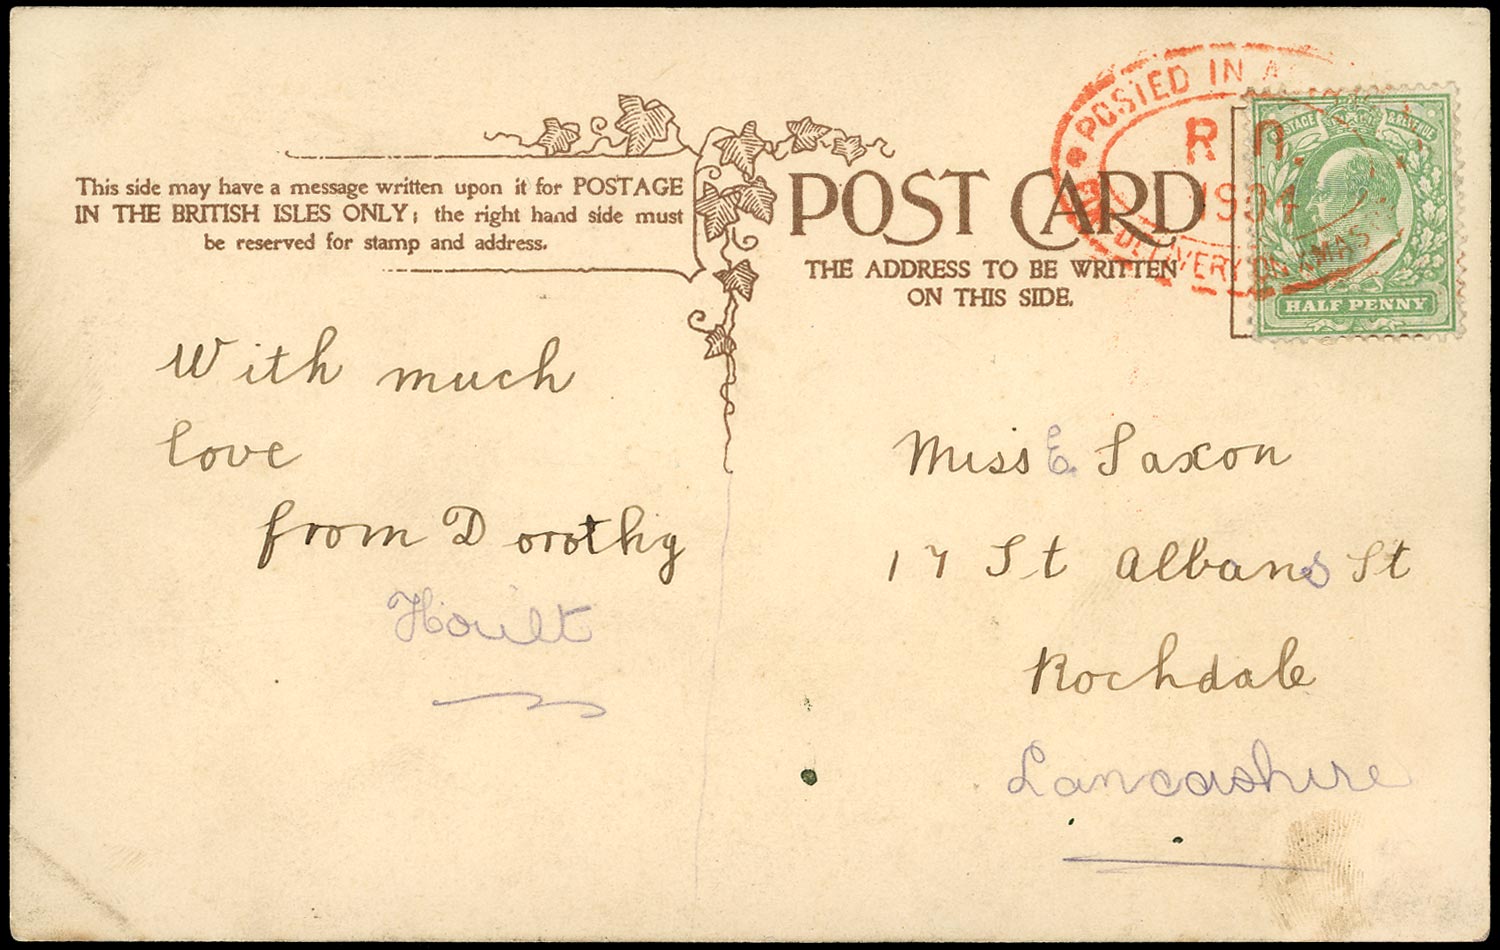 This side may have a message written upon it for POSTAGE
IN THE BRITISH ISLES ONLY; the right hand side must
be reserved for stamp and address.
With much
love
from Dorothy
Hoult
POST CARD
THE ADDRESS TO BE WRITTEN
ON THIS SIDE.
POSTED IN
R
1904
FOR DELIVERY ON XMAS
POSTAGE & REVENUE
HALF PENNY
Miss E. Saxon
17 St Albans St
Rochdale
Lancashire